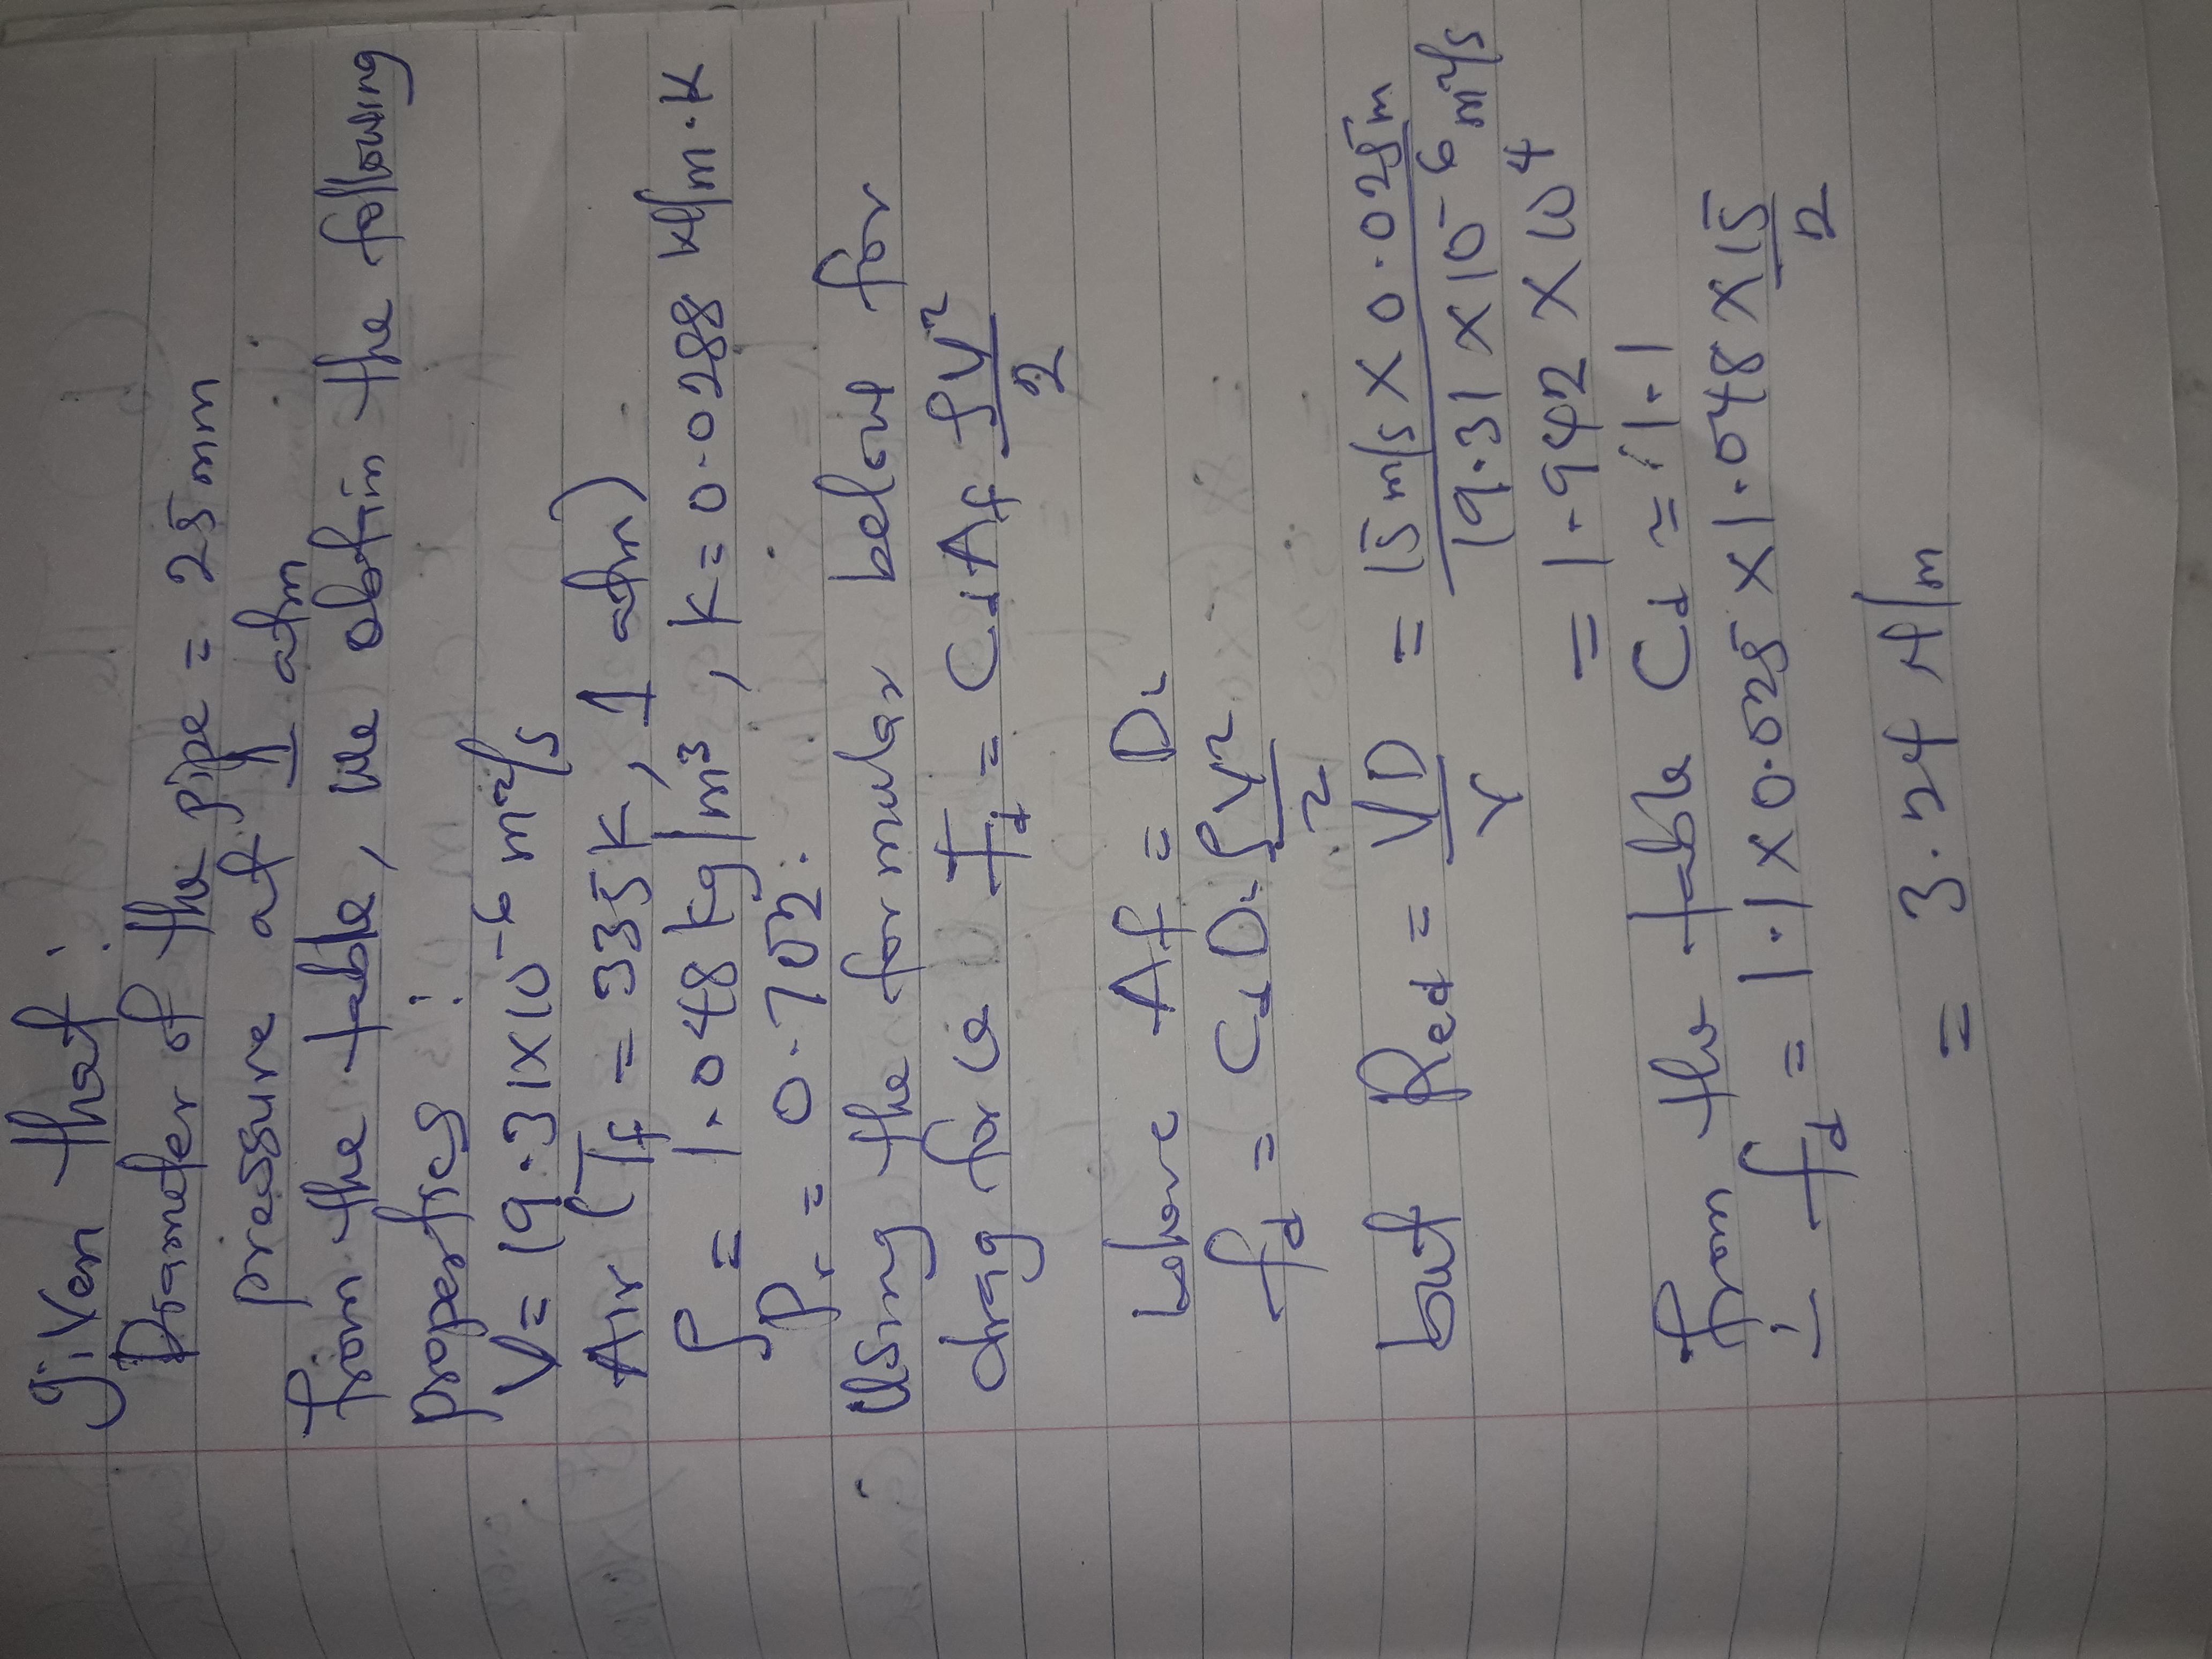 Given that :
Diameter of the pipe = 25 mm
pressure at 1 atm
from the table, we obtin the following
properties :
V = 19.31 x 10^-6 m²/s
Air (Tf = 335K, 1 atm)
ρ = 1.048 kg/m³, K = 0.0288 W/m.K
Pr = 0.702.
Using the formular below for
drag force Fd = Cd Af ρV²/2
where Af = Di
fd = Cd Di ρV²/2
but Red = VD/γ = 15 m/s x 0.025 m / 19.31 x 10^-6 m²/s
= 1.942 x 10^4
From the table Cd ≈ 1.1
∴ fd = 1.1 x 0.025 x 1.048 x 15/2
= 3.24 N/m